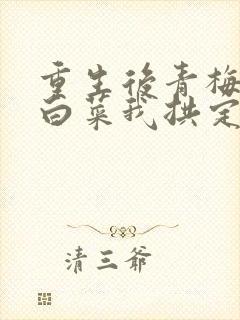 重生後青梅
白菜我拱定
清三爺